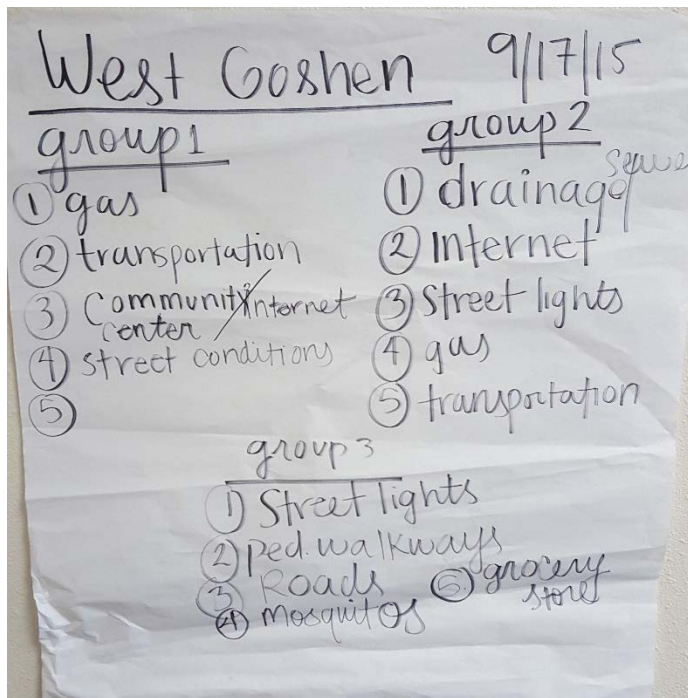 West Goshen 9/17/15
group 1
① gas
② transportation
③ Community/internet
center
④ Street conditions
⑤
group 2
① drainage
② Internet
③ Street lights
④ gas
⑤ transportation
group 3
① Street lights
② ped. walkways
③ Roads
④ mosquitos
⑤ grocery
stores